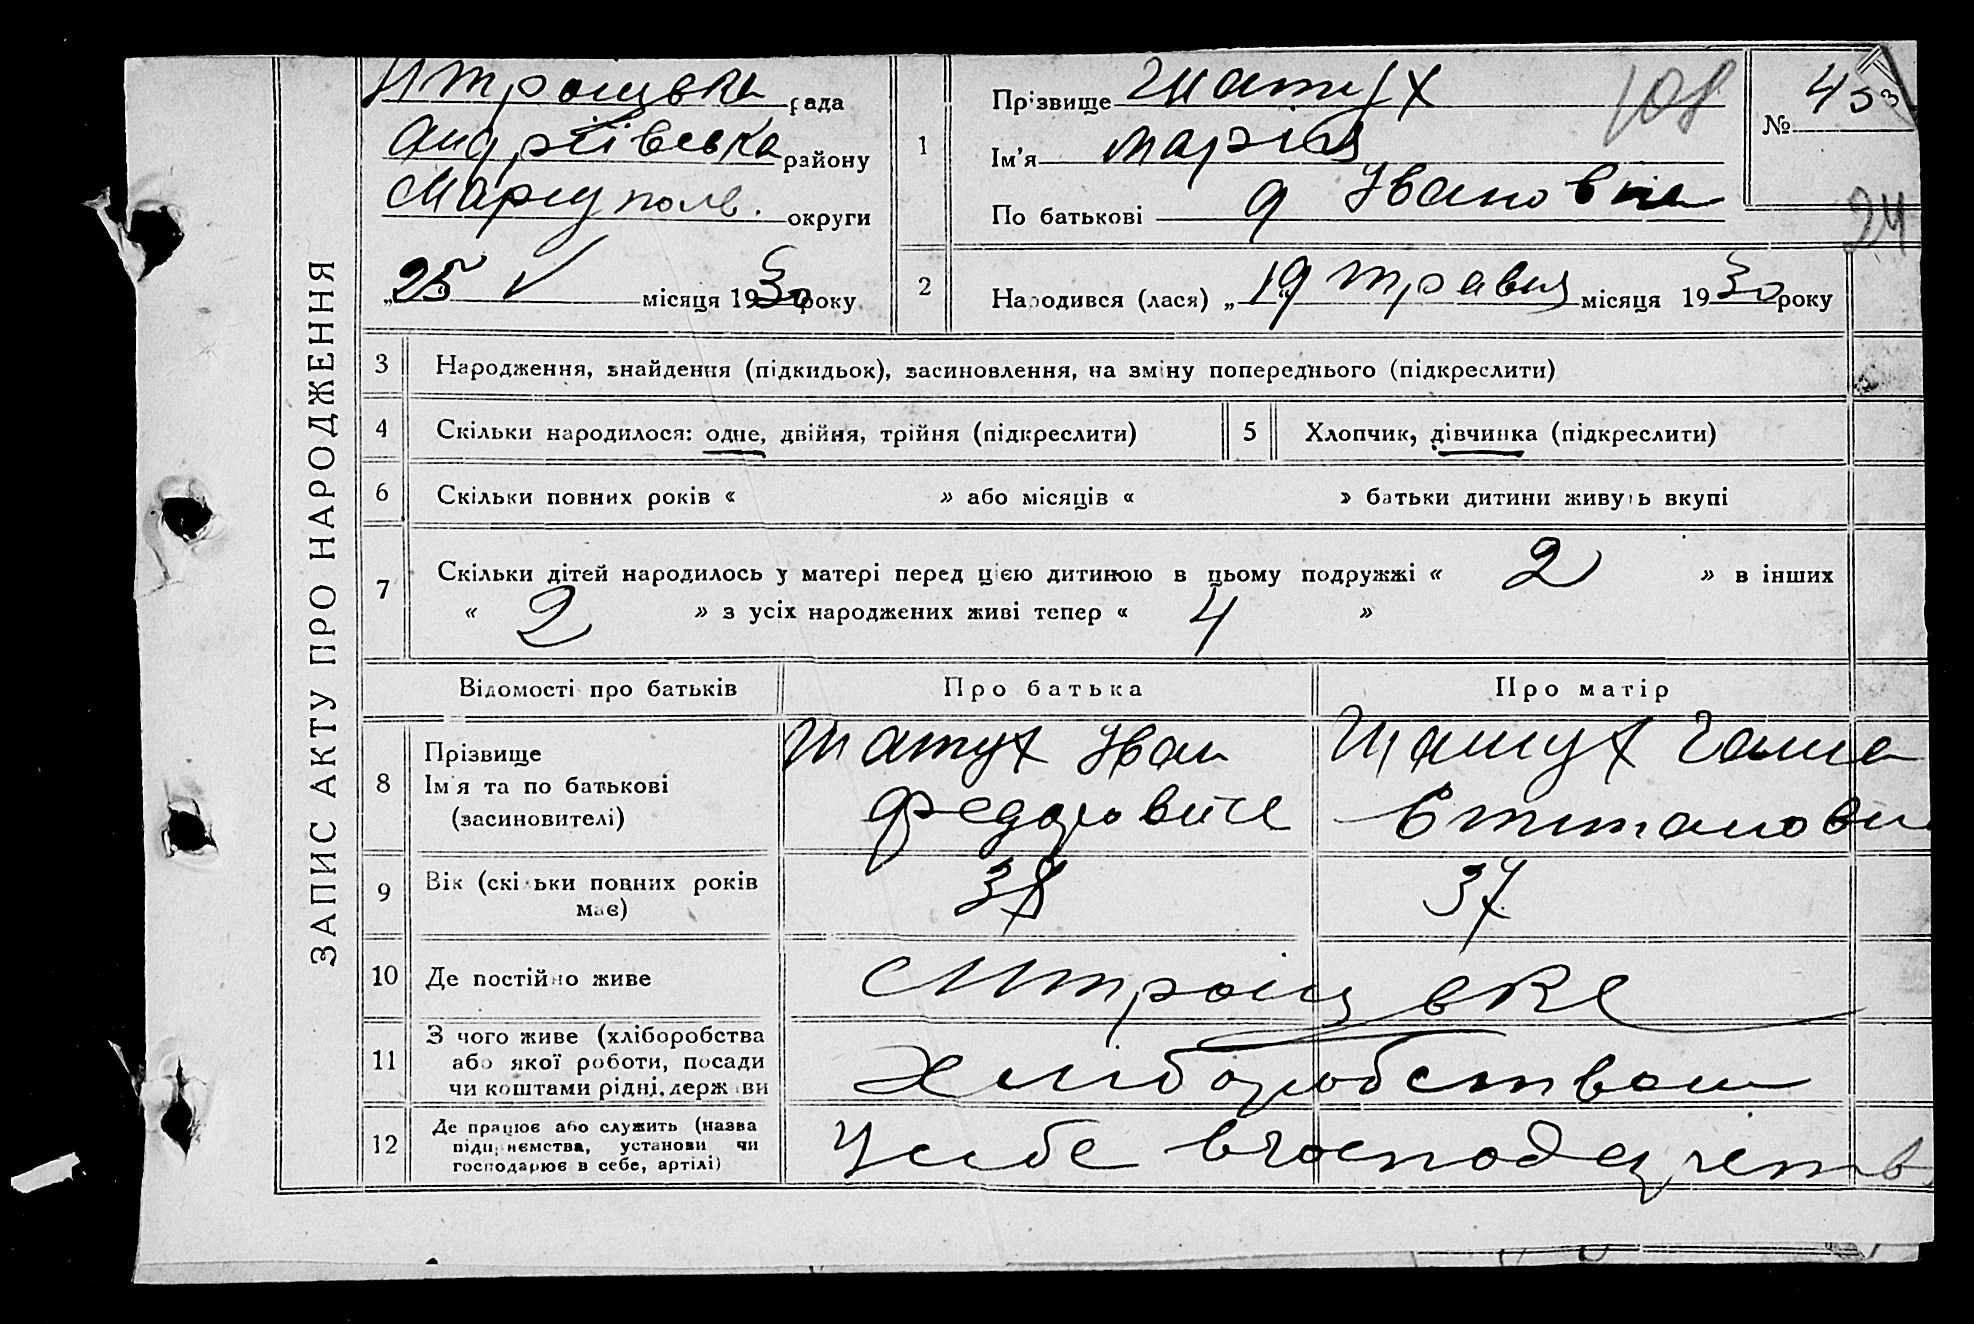 ЗАПИС АКТУ ПРО НАРОДЖЕННЯ
рада
Андріївська району
Маріуполь. округи
„25 V місяця 1930 року
1
Прізвище Шатух
Ім'я Марія
По батькові Івановна
№ 453
108
24
2
Народився (лася) „19“ травня місяця 1930 року
3 Народження, знайдення (підкидьок), засиновлення, на зміну попереднього (підкреслити)
4 Скільки народилося: одне, двійня, трійня (підкреслити)
5 Хлопчик, дівчинка (підкреслити)
6 Скільки повних років « » або місяців « » батьки дитини живуть вкупі
7 Скільки дітей народилось у матері перед цією дитиною в цьому подружжі « 2 » в інших
« 2 » з усіх народжених живі тепер « 4 »
Відомості про батьків Про батька Про матір
8 Прізвище
Ім'я та по батькові
(засиновителі)
Шатух Іван
Федорович
Шатух Ганна
9 Вік (скільки повних років
має)
38
37
10 Де постійно живе
11 З чого живе (хліборобства
або якої роботи, посади
чи коштами рідні, держави
Хліборобством
12 Де працює або служить (назва
підприємства, установи чи
господарює в себе, артілі)